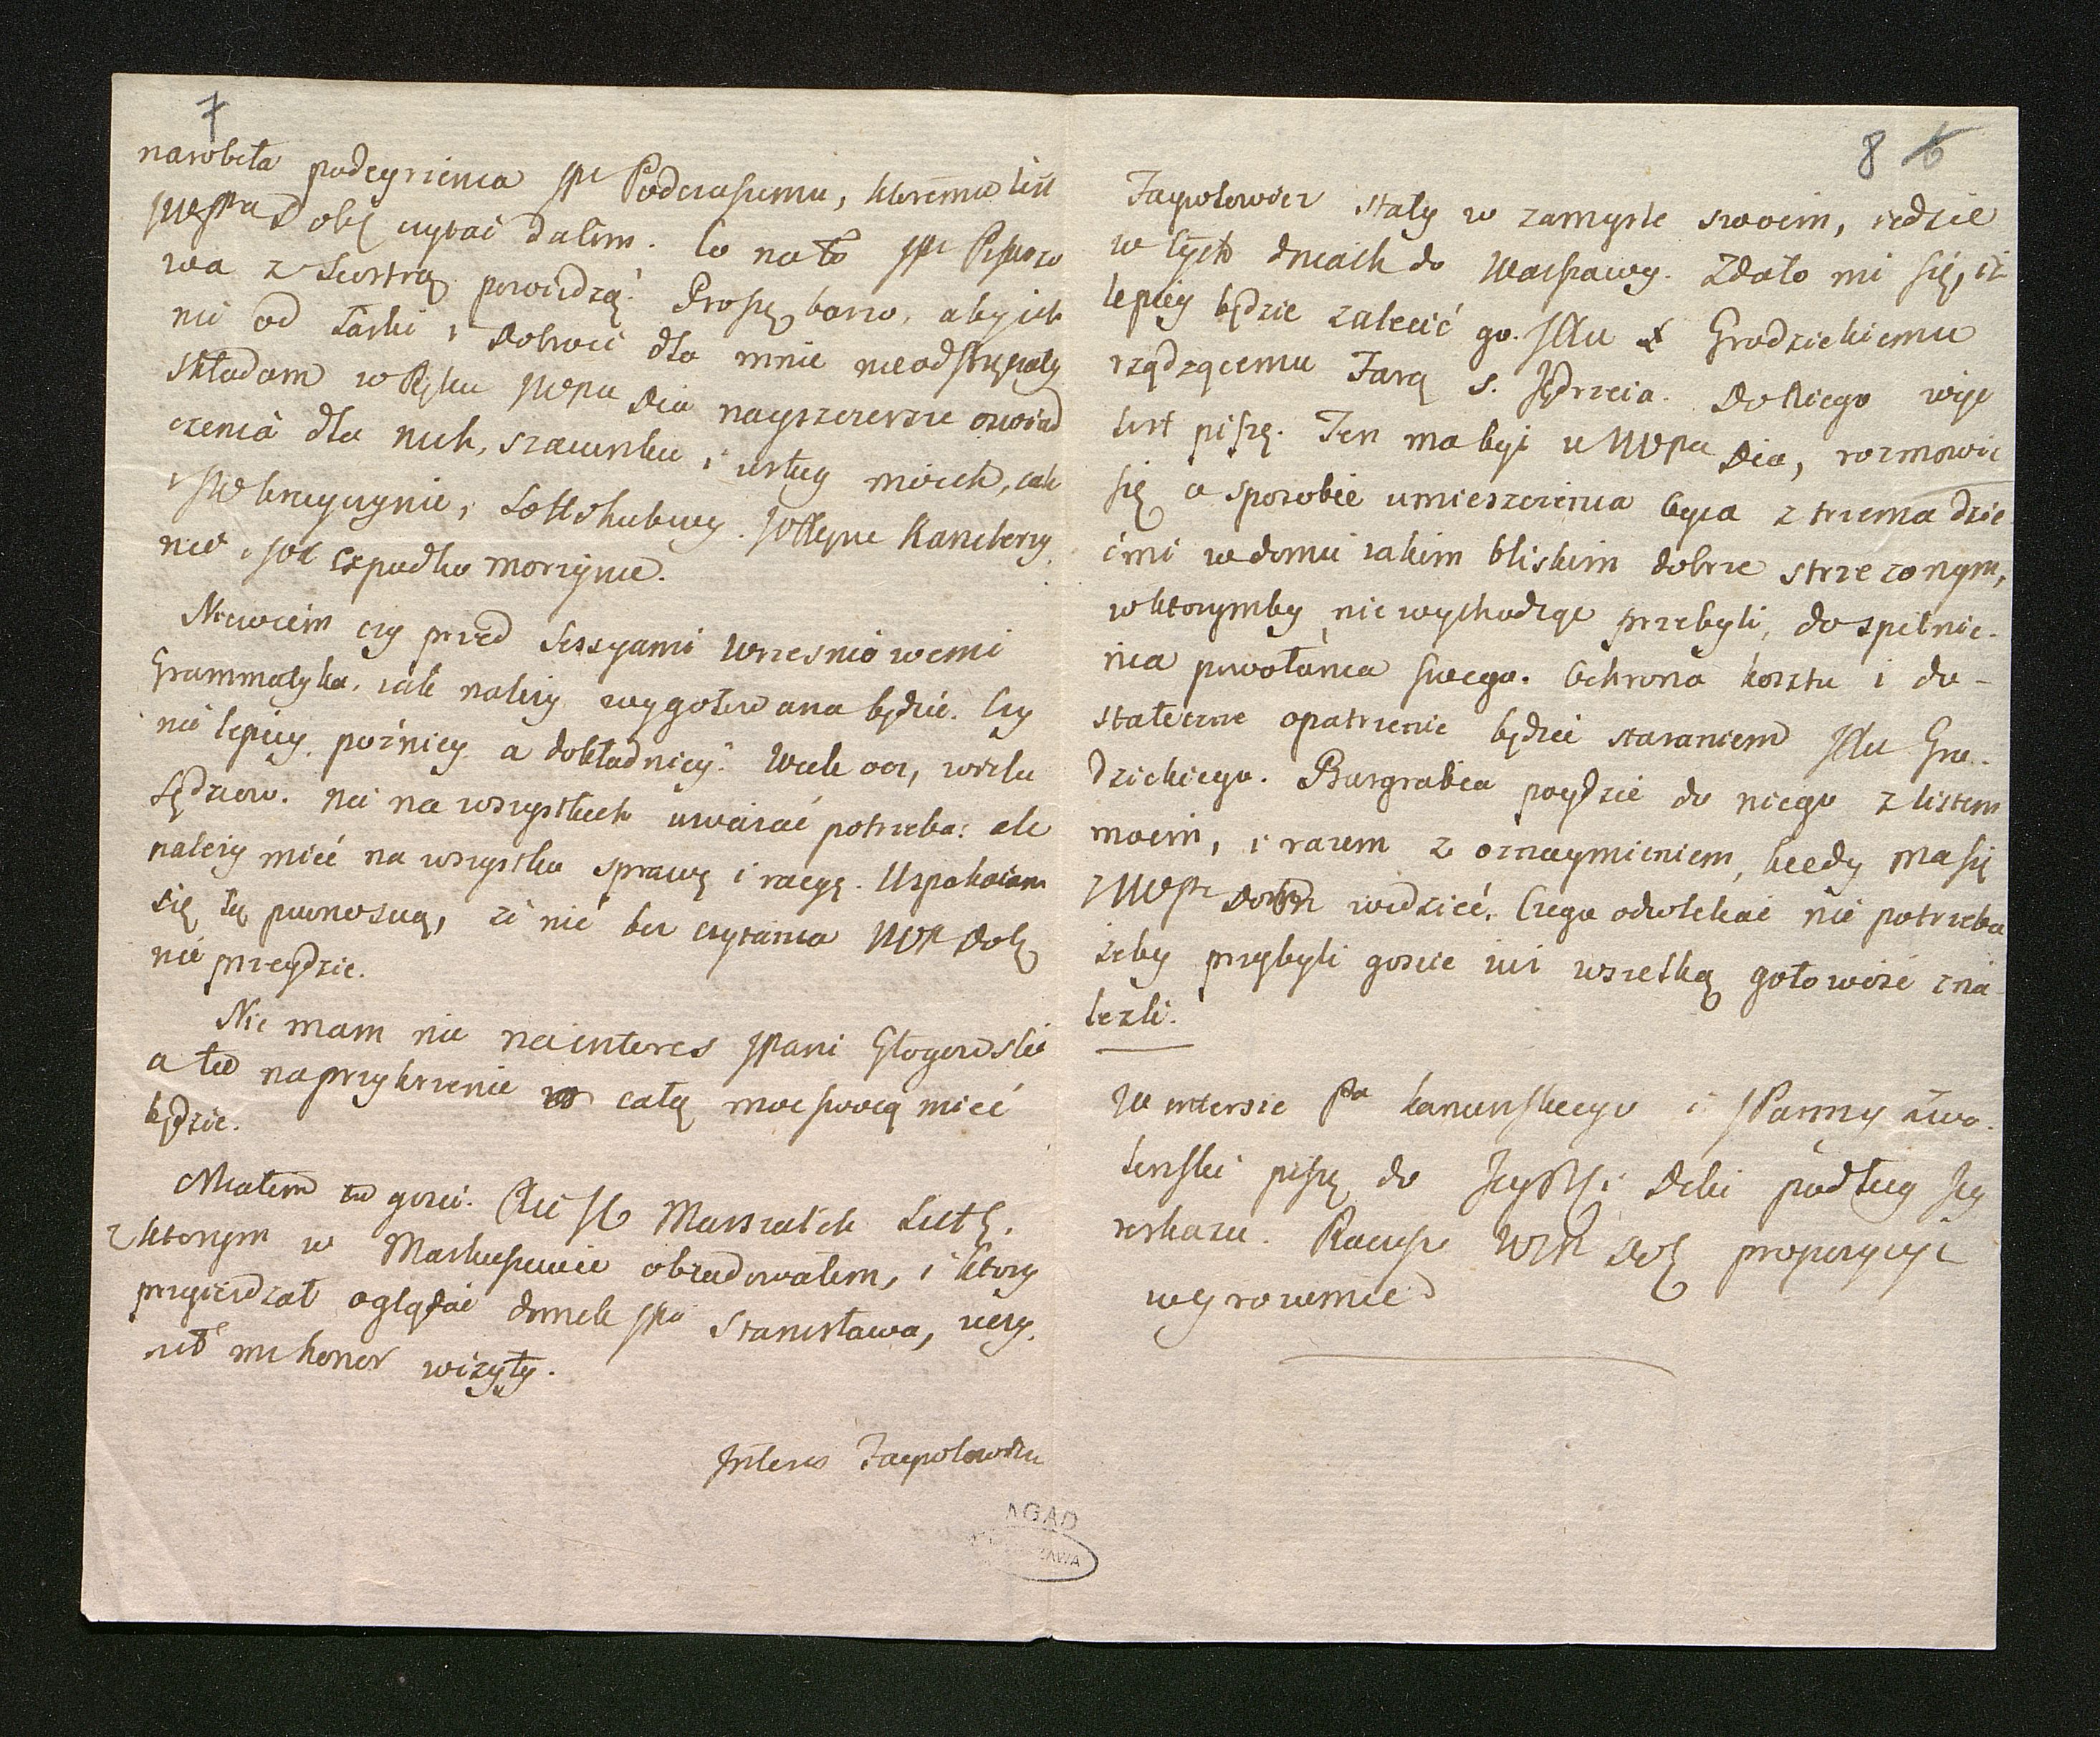 7
narobiła podeyrzienia JPu Podczaszemu, któremu list
JWPPana Dobj czytać dałem. Co na to JPi Pisarzo
wa z Siostrą powiedzą? Proszę barzo, aby ich
nic od łaski i dobroci dla mnie nieodstręczały
składam w Ręku JWPu Dia nayszczersze oswiad
czenia dla nich, szacunku i usług moich, iak
nie i JP
Niewiem czy przed Sessyami Wrzesniowemi
Grammatyka, iak należy wygotowana będzie. Czy
nie lepiey poźniey a dokładniey? Wiele ocz, wielu
Sędziow. nie na wszystkich uważać potrzeba: ale
należy mieć na wszystko sprawę i racyę. Uspokaiam
się tą pewnoscią, że nic bez czytania WP Dobj
nie przeydzie.
Nic mam nic na interes JPani Głogowskie
a tu naprzykrzenie całą moc swoią mieć
będzie.
Miałem tu gosci. Marszałek
z ktorym w Markuszewie obiadowałem, i ktory
przyieżdzał oglądać domek JPa Stanisława, uczy-
nił mi honor wizyty.
Interes Jaypołowicza
AGAD
WARSZAWA
8 6
Jaypołowicz stały w zamysle swoim, iedzie
w tych dniach do Warszawy. Zdało mi się, iż
lepiey będzie zalecić go JXu Grodzickiemu
rządzącemu Farą S. Jędrzeia. Do Niego więc
list piszę. Ten ma być u WPu Dia, rozmowić
się o sposobie umieszczenia Oyca z trzema dzie
ćmi w domu iakim bliskim dobrze strzezonym,
w ktorymby nie wychodząc przebyli, do spełnie-
nia powołania swego. Ochrona kosztu i do-
stateczne opatrzenie będzie staraniem JXu Gro-
dzickiego. Burgrabia poydzie do niego z listem
moim, i razem z oznaymieniem, kiedy ma się
z WPP Dobr widzieć. Czego odwlekać nie potrzeba
żeby przybyli goscie iuż wszelką gotowość zna
lezli.
W interesie Pa Kanunskiego i JPanny Zwo-
lenski piszę do podług Jey
roskazu. Raczysz WPP Dobj propozycye
wyrowniec